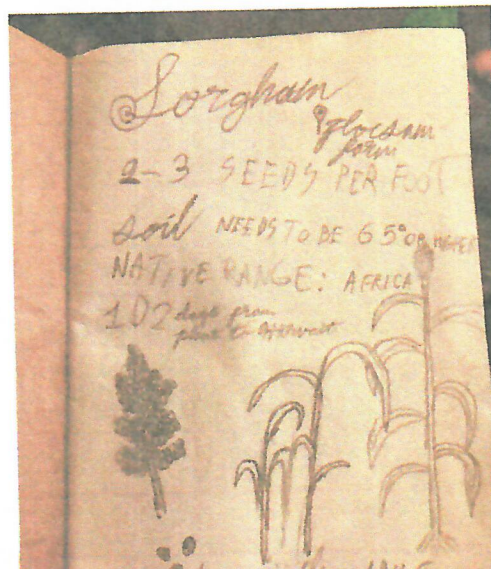 Sorghum
@ flocsam
farm
2-3 SEEDS PER FOOT
soil NEEDS TO BE 65° OR HIGHER
NATIVE RANGE: AFRICA
102 days from
plant to Harvest